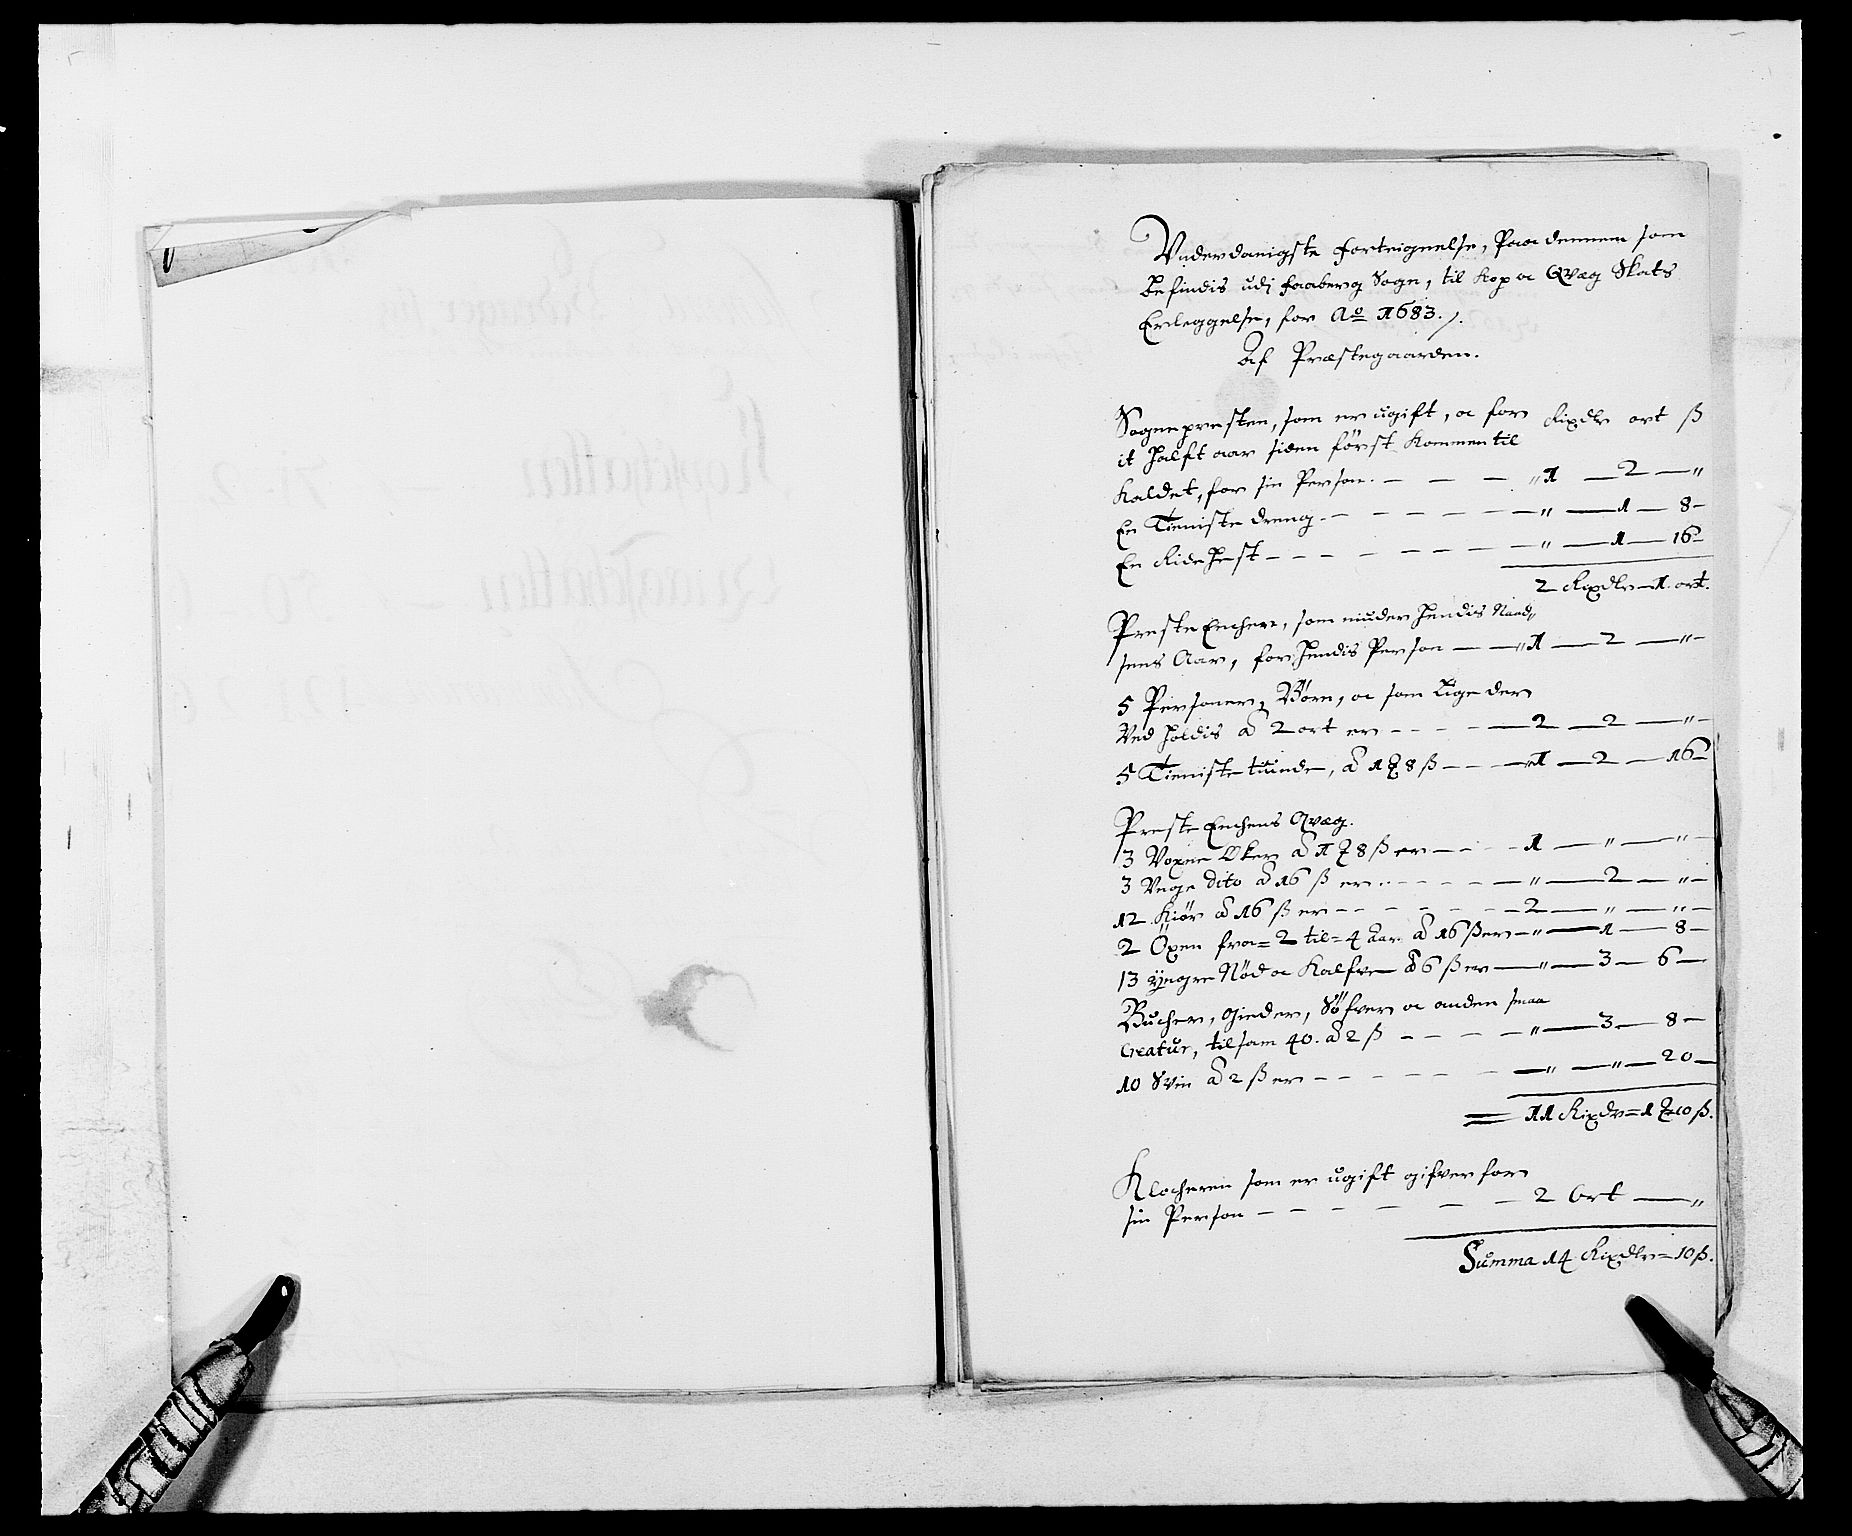 Vnderdanigste Forteignelse, Paa dennem som
befindis udj Faaberg Sogn, til Kop oc Qvæg Skats
Erleggelse, for Ao 1683./.
Af Præstegaarden.
Sognepresten, som er ugift, oc for Rixdlr ort ß
it halft aar siden først Kommen til
Kaldet, for sin Person. — — — " 1 — 2 — "
En Tieniste dreng - — — — — — " — 1 — 8 -
En Ride Hest - — — — — — " — 1 — 16 -
2 Rixdlr — 1. ort.
Preste Enchen, som niuder hendis Naad
sens Aar, for hendis Person — — " 1 — 2 — "
5 Personer, Børn, oc som lige der
Ved holdis à 2 ort er - - - - — 2 — 2 — "
5 Tieniste tiünde, à 1 ₰ 8 ß - - - — 1 — 2 — 16 -
Preste Enchens Qvæg.
3 Voxne Øker à 1 ₰ 8 ß er — - - - 1 — " — " -
3 Vnge Dito à 16 ß er - - - - — " — 2 — " -
12 Kiør à 16 ß er - - - - - - — 2 — " — " -
2 Öxen fra = 2 til = 4 Aar à 16 ß er — " — 1 — 8 -
13 yngre Nød oc Kalfve à 6 ß er — " — 3 — 6 —
Bucher, Gieder, Söfver oc anden smaa
Creatur, tilsam 40. à 2 ß - - - - — " — 3 — 8 -
10 Svin à 2 ß er - - - - - - — " — " — 20 -
= 11 Rixdr = 1 ₰ 10 ß.
Klocheren som er ugift gifver for
sin Person - - - - - - - 2 Ort — "
Summa 14 Rixdlr = 10 ß.